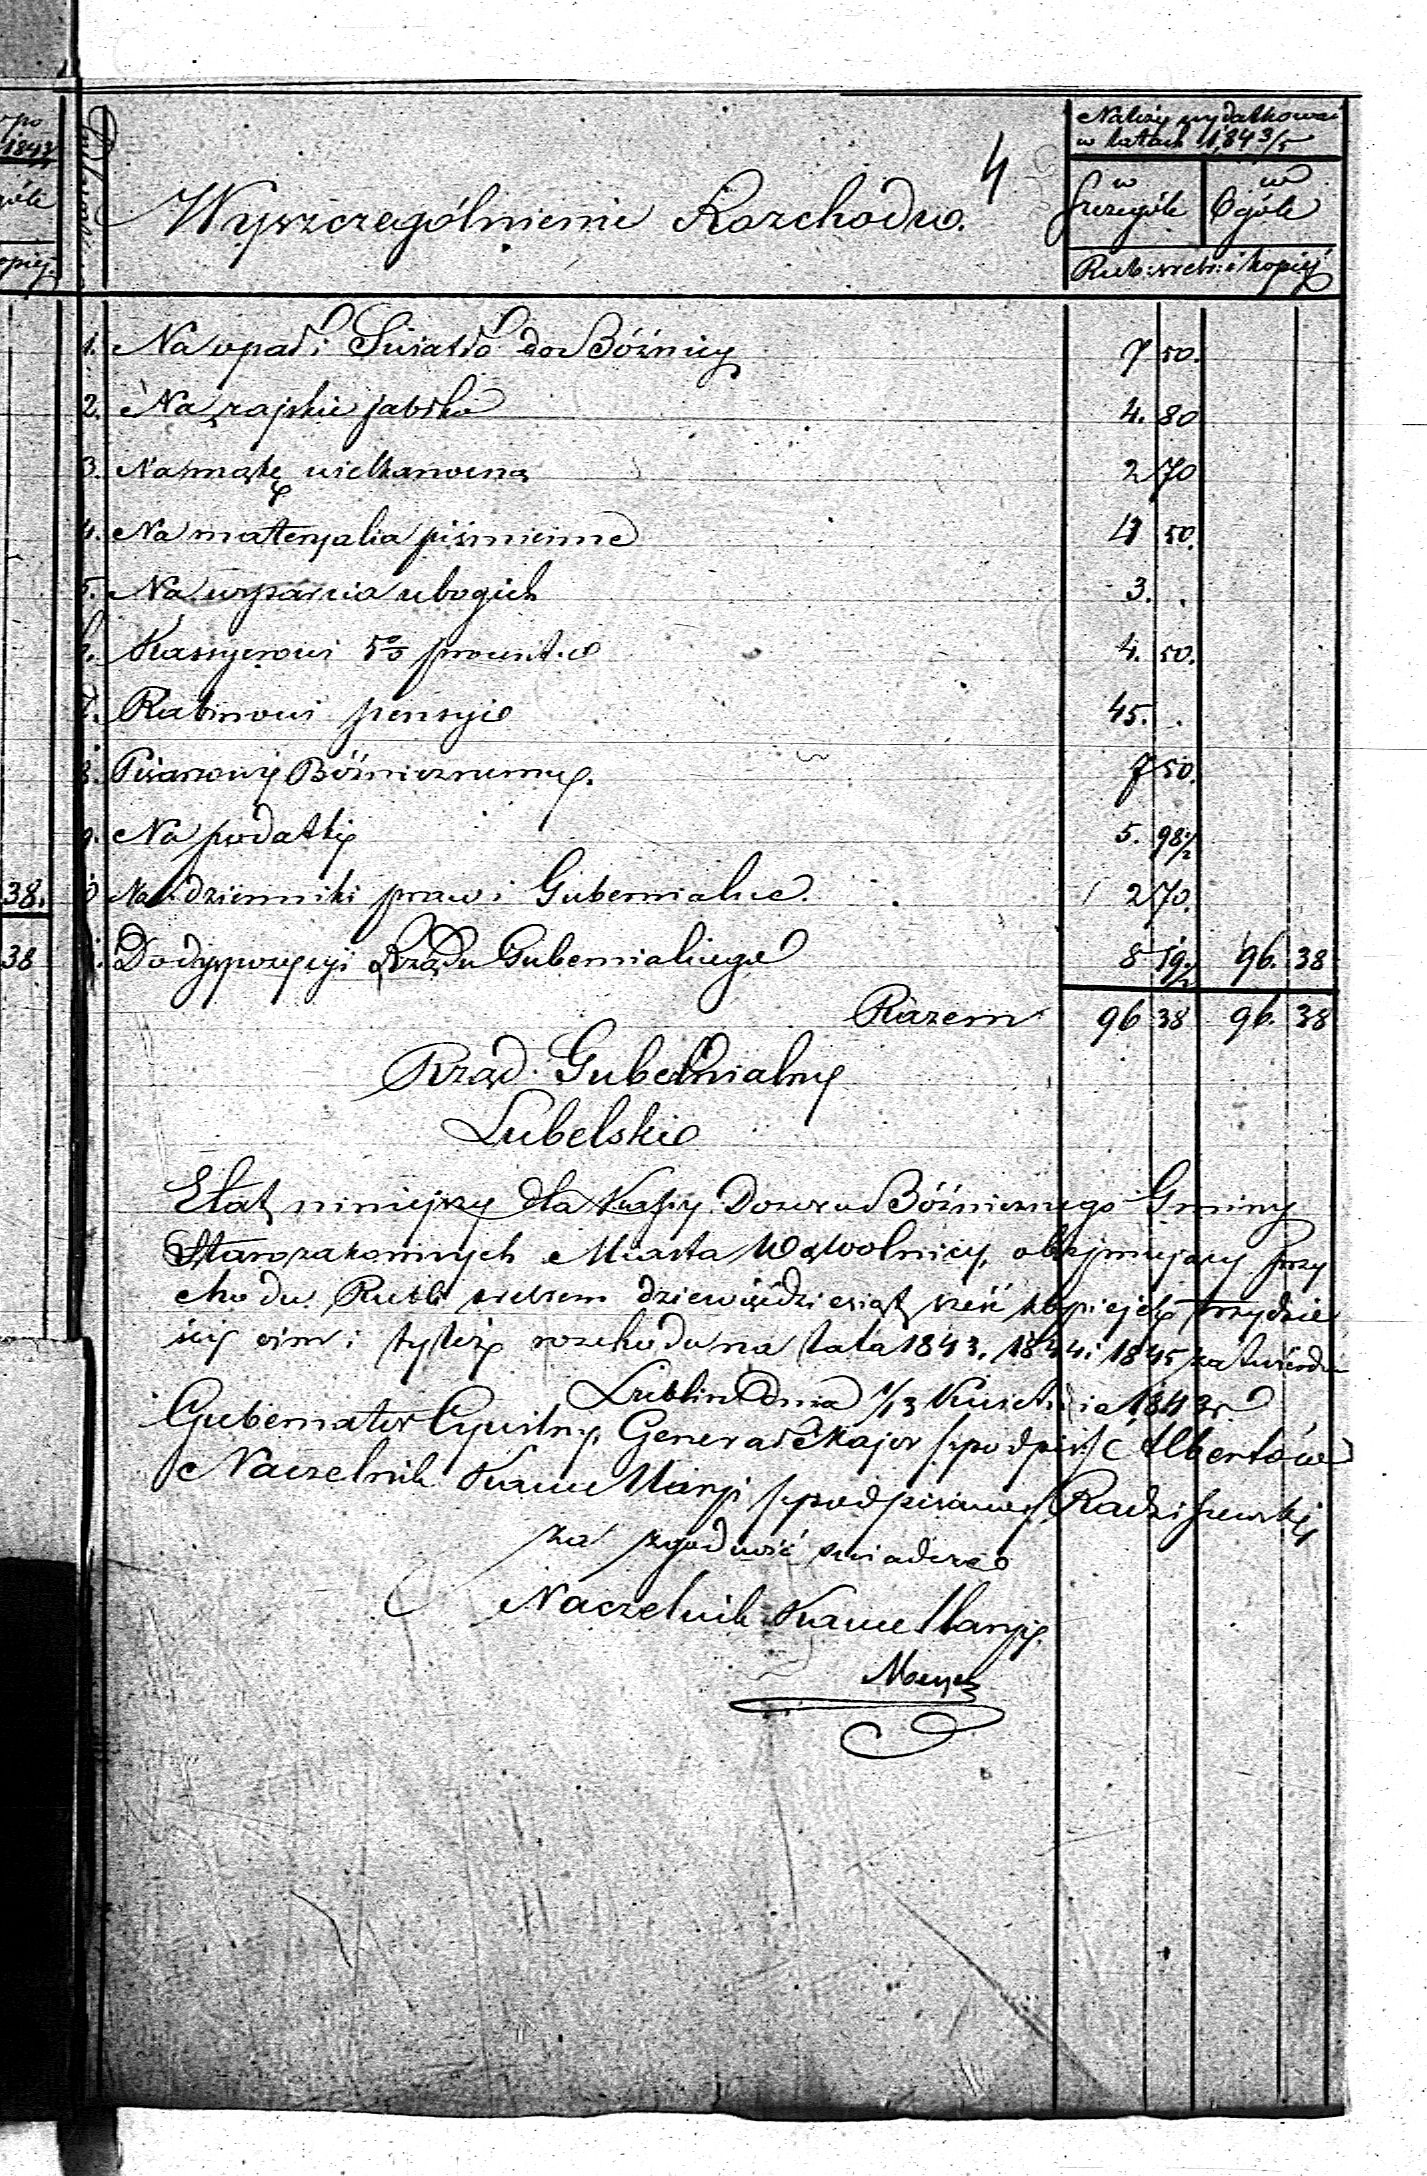 po
1843
góle
opiej.
38.
38
4
Wyszczególnienie Rozchodu.
Należy wydatkować
w latach 1843/5
w Szczególe
w Ogóle
Rub: srebr: i kopiej
1. Na opał i Swiatło do Bóżnicy 7 50.
2. Na rajskie jabłko 4. 80
3. Na mąkę wielkanocną 2 70
4. Na materyalia piśmienne 4 50.
5. Na wsparcia ubogich 3. .
6. Kassyerowi 5% procent 4. 50.
7. Rabinowi pensyi 45. .
8. Pisarzowi Bóżnicznemu. 7 50.
9. Na podatki 5. 98 1/2
10 Na dzienniki praw i Gubernialne. 2 70.
11. Do dyspozycyi Rządu Gubernialnego 8 19 1/2 96. 38
Razem 96 38 96. 38
Rząd Gubernialny
Lubelski
Etat niniejszy dla Kassy Dozoru Bóżnicznego Gminy
Starozakonnych Miasta Wąwolnicy, obejmujący przy
chodu Rubli srebrem dziewięćdziesiąt sześć kopiejek trzydzie
ści ośm i tyleż rozchodu na lata 1843. 1844 i 1845 zatwierdza
Lublin dnia 1/13 Kwietnia 1843 r.
Gubernator Cywilny, Generał Major (podpis) Albertów
Naczelnik Kancellaryi (podpisano) Radziszewski
za zgodność swiadczę
Naczelnik Kancellaryi.